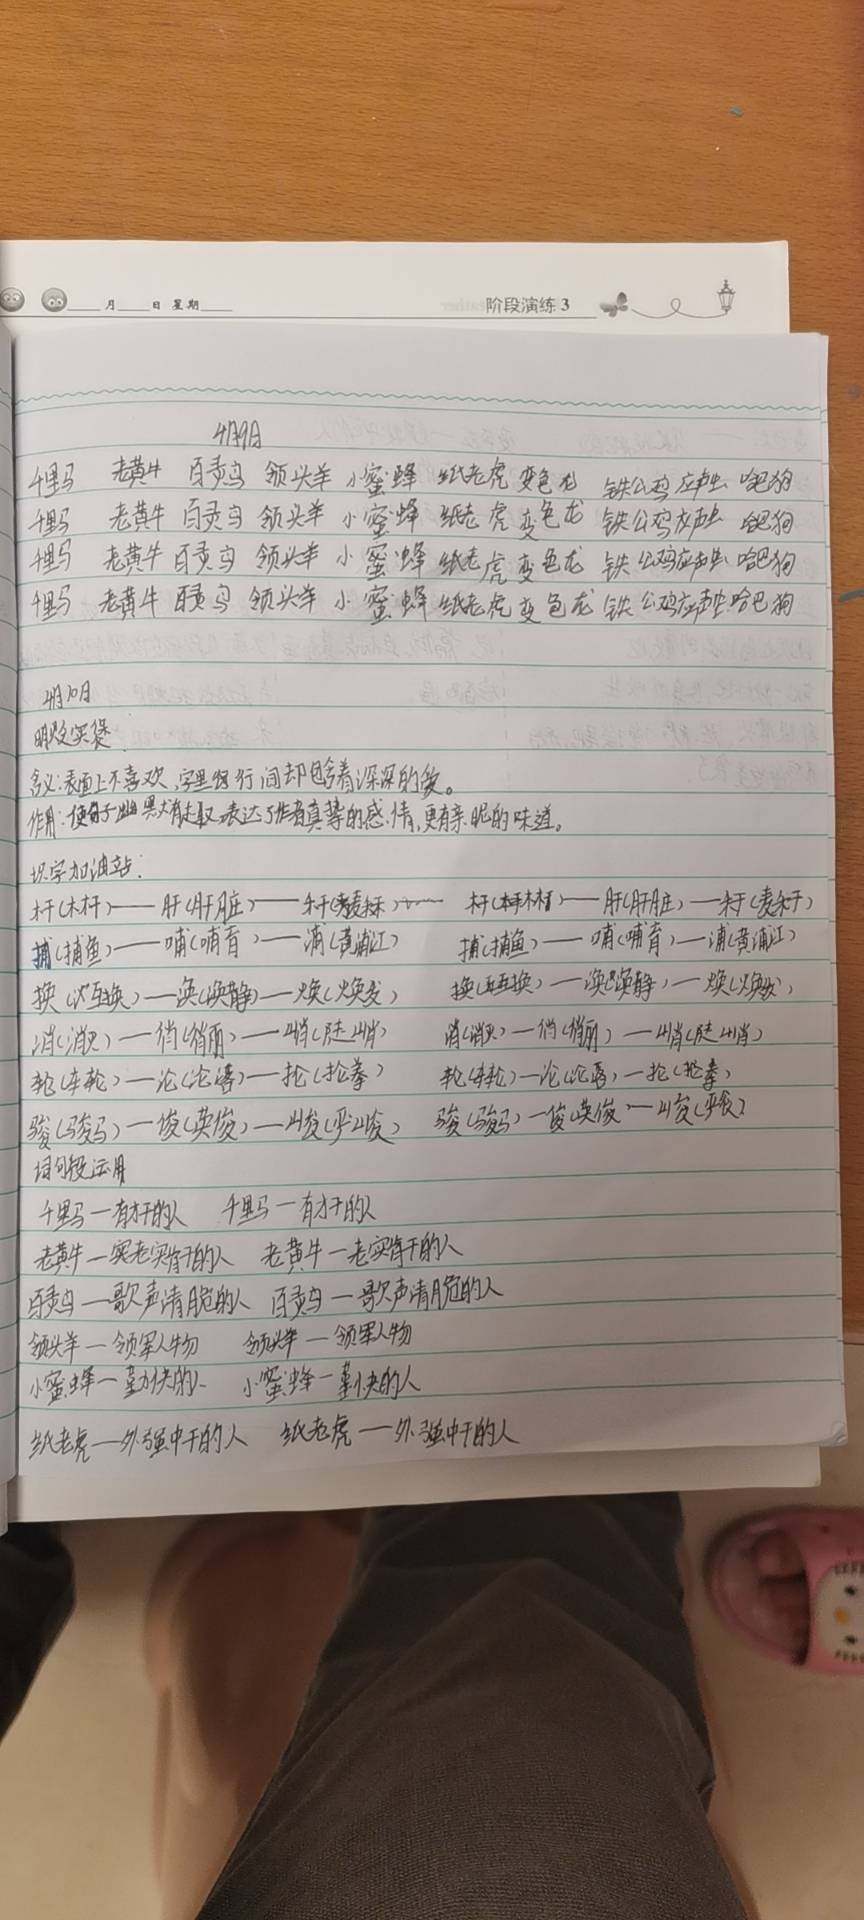 ____月____日 星期____ 阶段演练 3
4月9日
千里马 老黄牛 百灵鸟 领头羊 小蜜蜂 纸老虎 变色龙 铁公鸡 应声虫 哈巴狗
千里马 老黄牛 百灵鸟 领头羊 小蜜蜂 纸老虎 变色龙 铁公鸡 应声虫 哈巴狗
千里马 老黄牛 百灵鸟 领头羊 小蜜蜂 纸老虎 变色龙 铁公鸡 应声虫 哈巴狗
千里马 老黄牛 百灵鸟 领头羊 小蜜蜂 纸老虎 变色龙 铁公鸡 应声虫 哈巴狗
4月10日
明贬实褒
含义:表面上不喜欢,字里行间却包含着深深的爱。
作用:使句子幽默有趣,表达了作者真挚的感情,更有亲昵的味道。
识字加油站:
杆(木杆)——肝(肝脏)—— 杆(木杆)——肝(肝脏)——
捕(捕鱼)——哺(哺育)——浦(黄浦江) 捕(捕鱼)——哺(哺育)——浦(黄浦江)
换(互换)——涣(涣静)——焕(焕发) 换(互换)——涣(涣静)——焕(焕发)
消(消灭)——俏(俏丽)——峭(陡峭) 消(消灭)——俏(俏丽)——峭(陡峭)
轮(车轮)——沦(沦落)——抡(抡拳) 轮(车轮)——沦(沦落)——抡(抡拳)
骏(骏马)——俊(英俊)——峻(严峻) 骏(骏马)——俊(英俊)——峻(严峻)
词句段运用
千里马—有才干的人 千里马—有才干的人
老黄牛—老实肯干的人 老黄牛—老实肯干的人
百灵鸟—歌声清脆的人 百灵鸟—歌声清脆的人
领头羊—领军人物 领头羊—领军人物
小蜜蜂—勤快的人 小蜜蜂—勤快的人
纸老虎—外强中干的人 纸老虎—外强中干的人